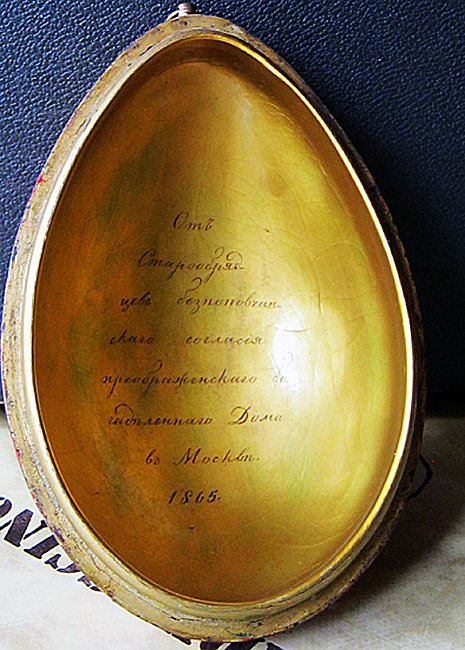 Отъ
Старообряд-
цевъ безпоповчин-
скаго согласія
преображенскаго бо
гадѣленнаго Дома
въ Москвѣ.
1865.